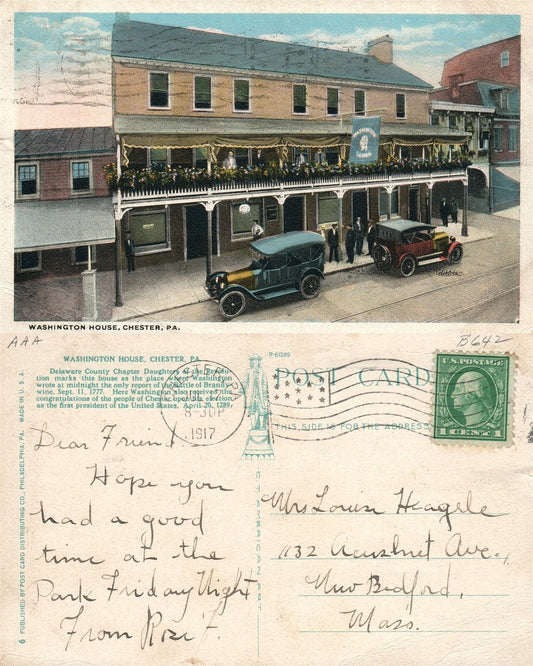 WASHINGTON HOUSE
WASHINGTON HOUSE, CHESTER, PA.
AAA
B642
WASHINGTON HOUSE, CHESTER, PA.
Delaware County Chapter Daughters of the Revolution
marks this house as the place where Washington
wrote at midnight the only report of the Battle of Brandywine,
Sept. 11, 1777. Here Washington also received the
congratulations of the people of Chester upon his election
as the first president of the United States, April 20, 1789.
R-61299
POST CARD
THIS SIDE IS FOR THE ADDRESS
1917
U.S. POSTAGE
1 CENT 1
MADE IN U.S.A.
6 PUBLISHED BY POST CARD DISTRIBUTING CO., PHILADELPHIA, PA.
Dear Friend
Hope you
had a good
time at the
Park Friday Night
From Rose F.
Mrs Louise Heagele
1132 Acushnet Ave.,
New Bedford,
Mass.